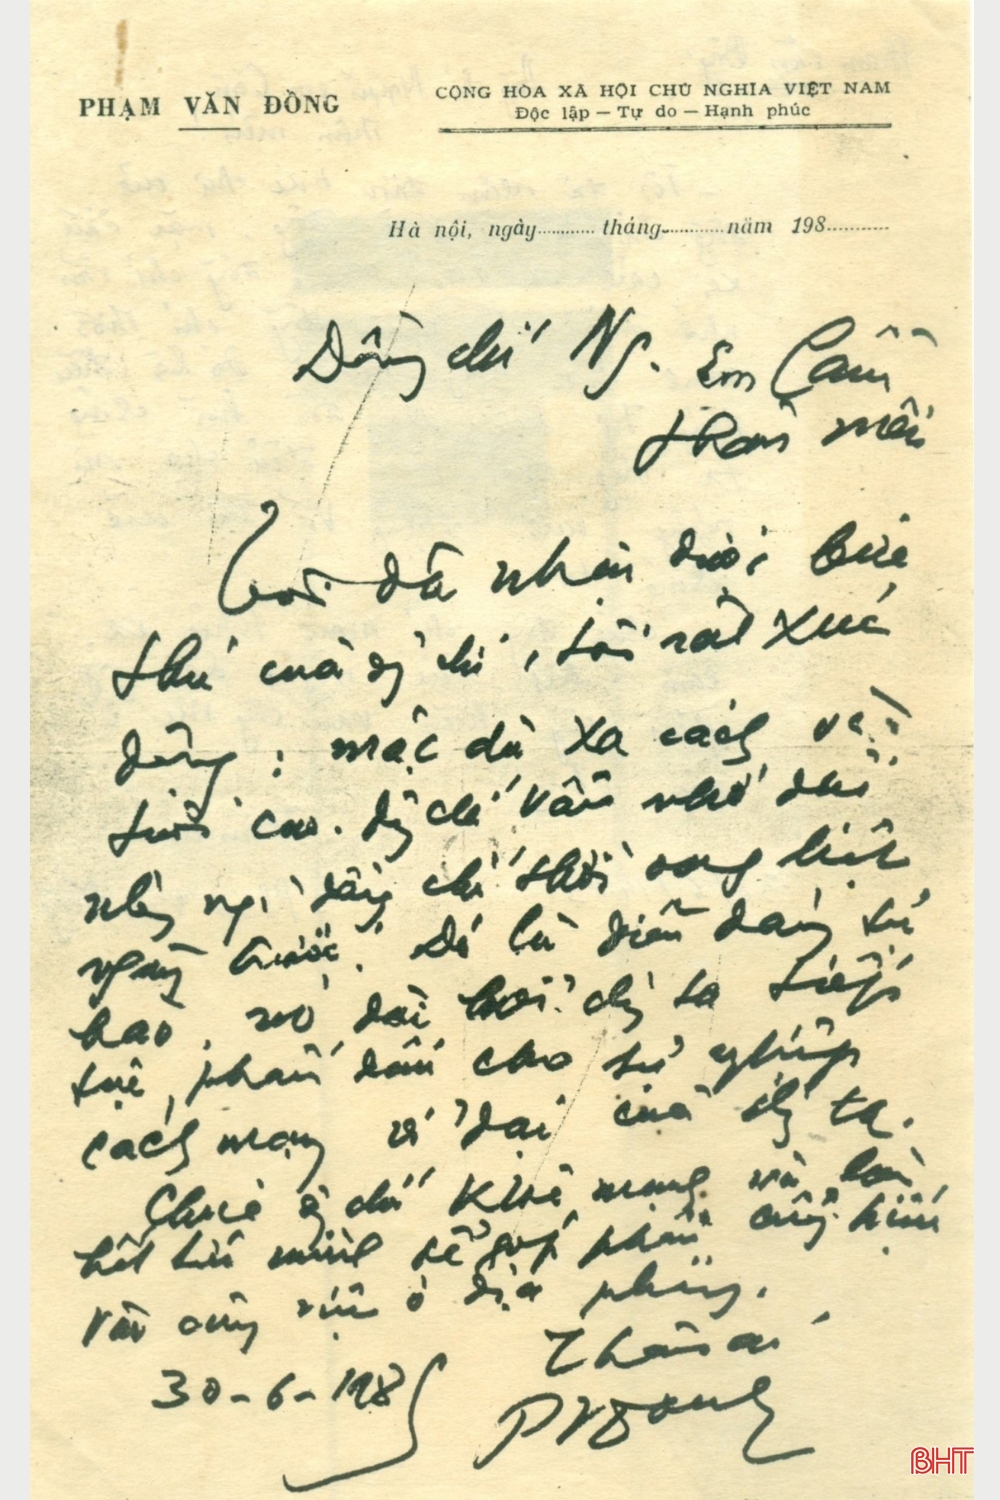 PHẠM VĂN ĐỒNG
CỘNG HÒA XÃ HỘI CHỦ NGHĨA VIỆT NAM
Độc lập — Tự do — Hạnh phúc
Hà nội, ngày............ tháng............ năm 198............
Đồng chí Ng. Em Cầm
thân mến
Tôi đã nhận được bức
thư của đ/ chí, tôi rất xúc
động: mặc dù xa cách và
tuổi cao. Đ/ chí vẫn nhớ đến
những ng. đồng chí thời oanh liệt
ngày trước. Đó là điều đáng tự
hào, nó đòi hỏi ch/ ta tiếp
tục phấn đấu cho sự nghiệp
cách mạng vĩ đại của ch/ ta.
Chúc đ/ chí khỏe mạnh và làm
hết sức mình để góp phần cống hiến
vào công việc ở địa phương.
Thân ái
30-6-198
PVĐong
BHT